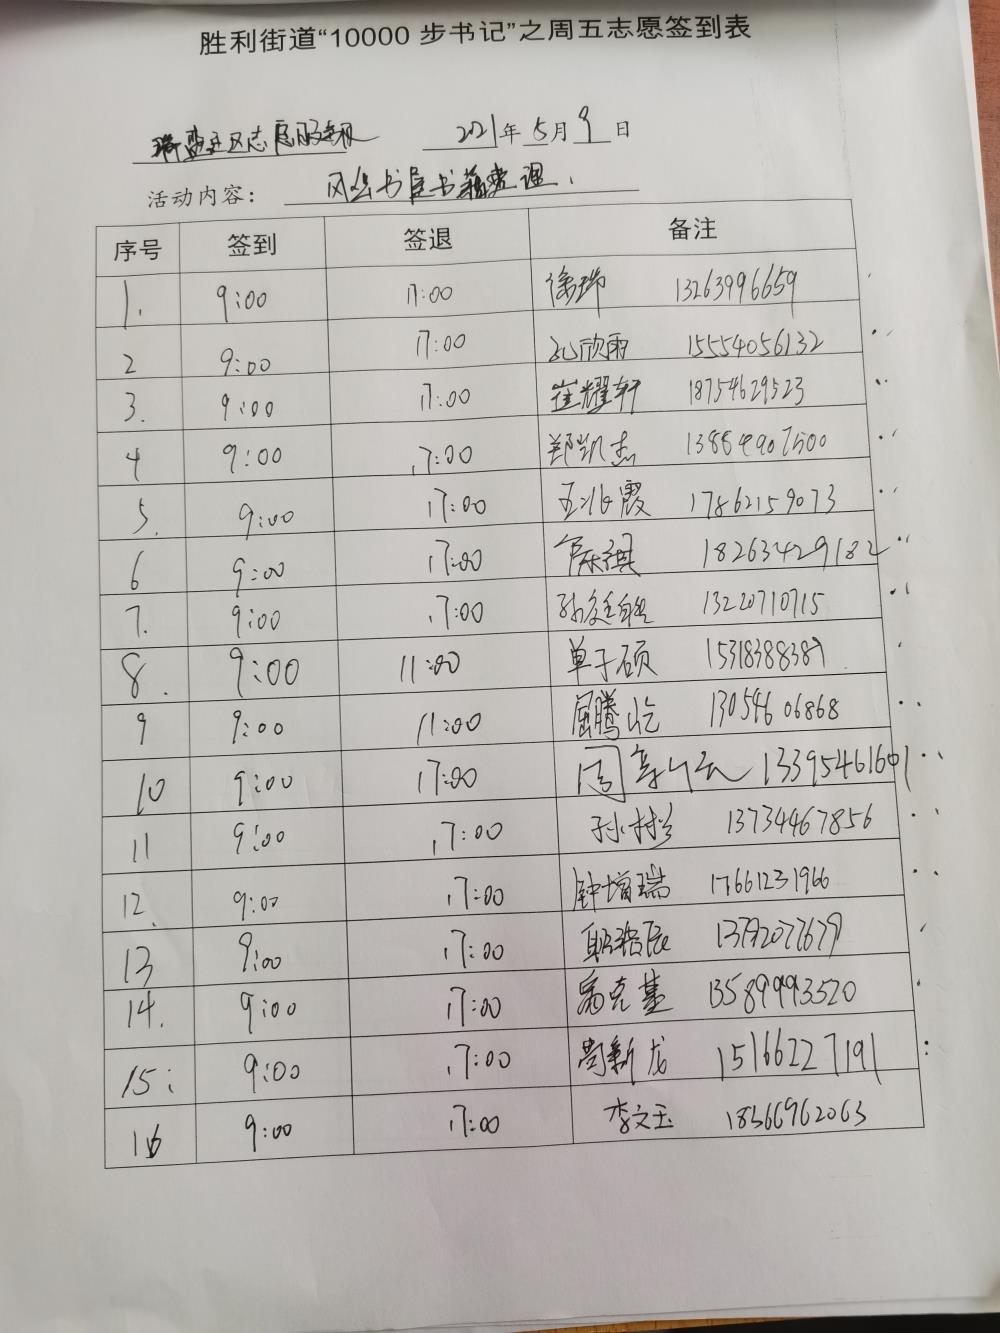 胜利街道“10000 步书记”之周五志愿签到表
社区志愿服务 2021年5月9日
活动内容： 书屋书籍整理.
序号 签到 签退 备注
1. 9:00 17:00 徐瑞 13263996659
2 9:00 17:00 孔欣雨 15554056132
3. 9:00 17:00 崔耀轩 18754629523
4 9:00 17:00 郑凯杰 13884907500
5. 9:00 17:00 王兆霞 17862159073
6 9:00 17:00 18263429182
7. 9:00 17:00 13220710715
8. 9:00 11:00 单子硕 15318388389
9 9:00 11:00 屈腾屹 13054606868
10 9:00 17:00 周 13395461601
11 9:00 17:00 孙彬 13734467856
12. 9:00 17:00 钟增瑞 17661231966
13 9:00 17:00 13792077679
14. 9:00 17:00 克基 13589993520
15: 9:00 17:00 新龙 15166227191
16 9:00 17:00 李文玉 18366962063